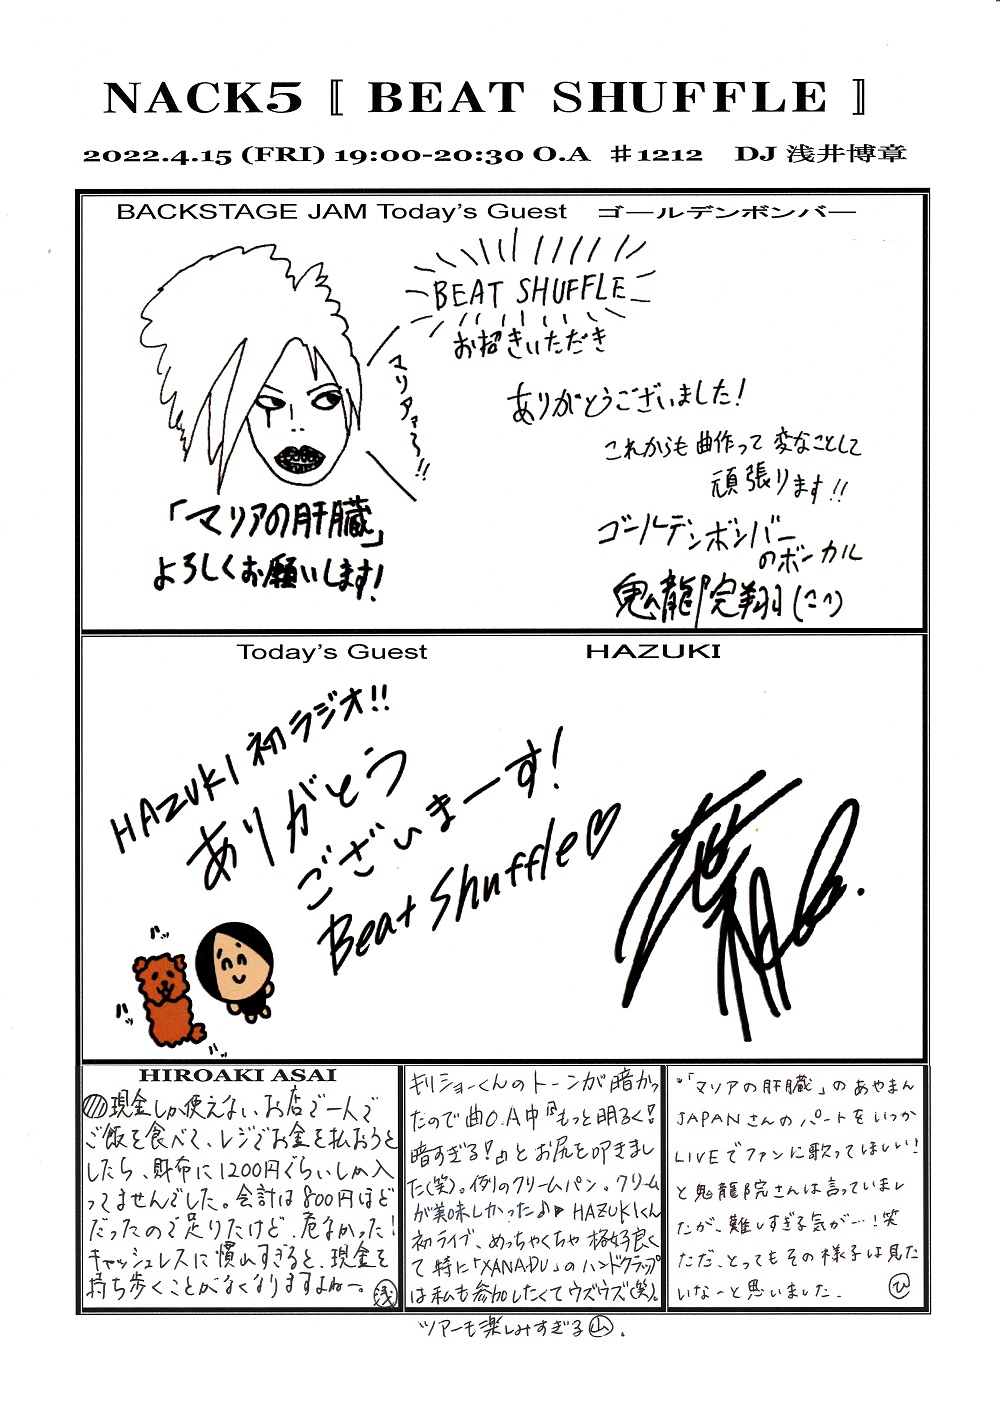 NACK5〚 BEAT SHUFFLE 〛
2022.4.15 (FRI) 19:00-20:30 O.A ♯1212 DJ 浅井博章
BACKSTAGE JAM Today's Guest ゴールデンボンバー
BEAT SHUFFLE
お招きいただき
マリアァ〜!!
ありがとうございました!
これからも曲作って変なことして
頑張ります!!
「マリアの肝臓」
よろしくお願いします!
ゴールデンボンバー
のボーカル
鬼龍院翔
Today's Guest HAZUKI
HAZUKI 初ラジオ!!
ありがとう
ございまーす!
Beat Shuffle♡
HIROAKI ASAI
現金しか使えないお店で一人で
ご飯を食べて、レジでお金を払おうと
したら、財布に1200円ぐらいしか入
ってませんでした。会計は800円ほど
だったので足りたけど、危なかった!
キャッシュレスに慣れすぎると、現金を
持ち歩くことがなくなりますよねー。浅
キリショーくんのトーンが暗かっ
たので曲O.A中『もっと明るく!
暗すぎる!』とお尻を叩きまし
た(笑)。例のクリームパン。クリーム
が美味しかった♪▶HAZUKIくん
初ライブ、めっちゃくちゃ格好良く
て特に「XANADU」のハンドクラップ
は私も参加したくてウズウズ(笑)。
ツアーも楽しみすぎる山。
・「マリアの肝臓」のあやまん
JAPANさんのパートをいつか
LIVEでファンに歌ってほしい!
と鬼龍院さんは言っていまし
たが、難しすぎる気が…!笑
ただ、とってもその様子は見た
いなーと思いました. ひ